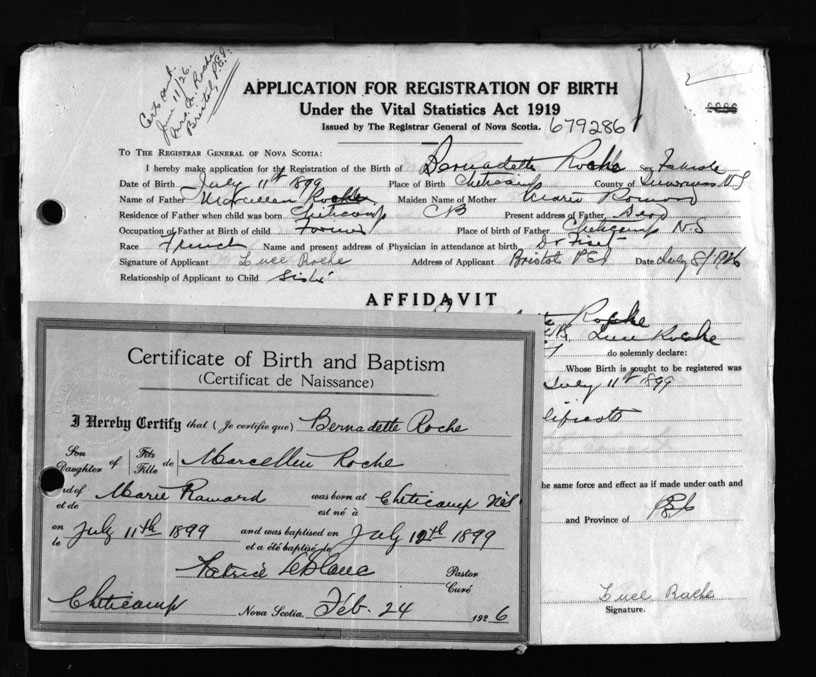 Certs out.
June 11/26.
Mrs. M. Roche
Bristol, P.E.I.
APPLICATION FOR REGISTRATION OF BIRTH
Under the Vital Statistics Act 1919
Issued by The Registrar General of Nova Scotia. 679286
TO THE REGISTRAR GENERAL OF NOVA SCOTIA:
I hereby make application for the Registration of the Birth of Bernadette Roche sex Female
Date of Birth July 11th 1899 Place of Birth Cheticamp County of Inverness N S
Name of Father Marcellin Roche Maiden Name of Mother Marie Romard
Residence of Father when child was born Cheticamp CB Present address of Father Dead
Occupation of Father at Birth of child Farmer Place of birth of Father Cheticamp N.S
Race French Name and present address of Physician in attendance at birth Dr Fiset
Signature of Applicant Luce Roche Address of Applicant Bristol PEI Date July 8/1926
Relationship of Applicant to Child Sister
AFFIDAVIT
Roche
Luce Roche
do solemnly declare:
Whose Birth is sought to be registered was
July 11th 1899
he same force and effect as if made under oath and
and Province of PEI
Luce Roche
Signature.
Certificate of Birth and Baptism
(Certificat de Naissance)
I Hereby Certify that (Je certifie que) Bernadette Roche
Son Daughter of Fils Fille de Marcellin Roche
nd of et de Marie Ramard was born at est né à Cheticamp N.S
on le July 11th 1899 and was baptised on et a été baptisé le July 12th 1899
Patrice LeBlanc Pastor Curé
Cheticamp Nova Scotia. Feb. 24 1926